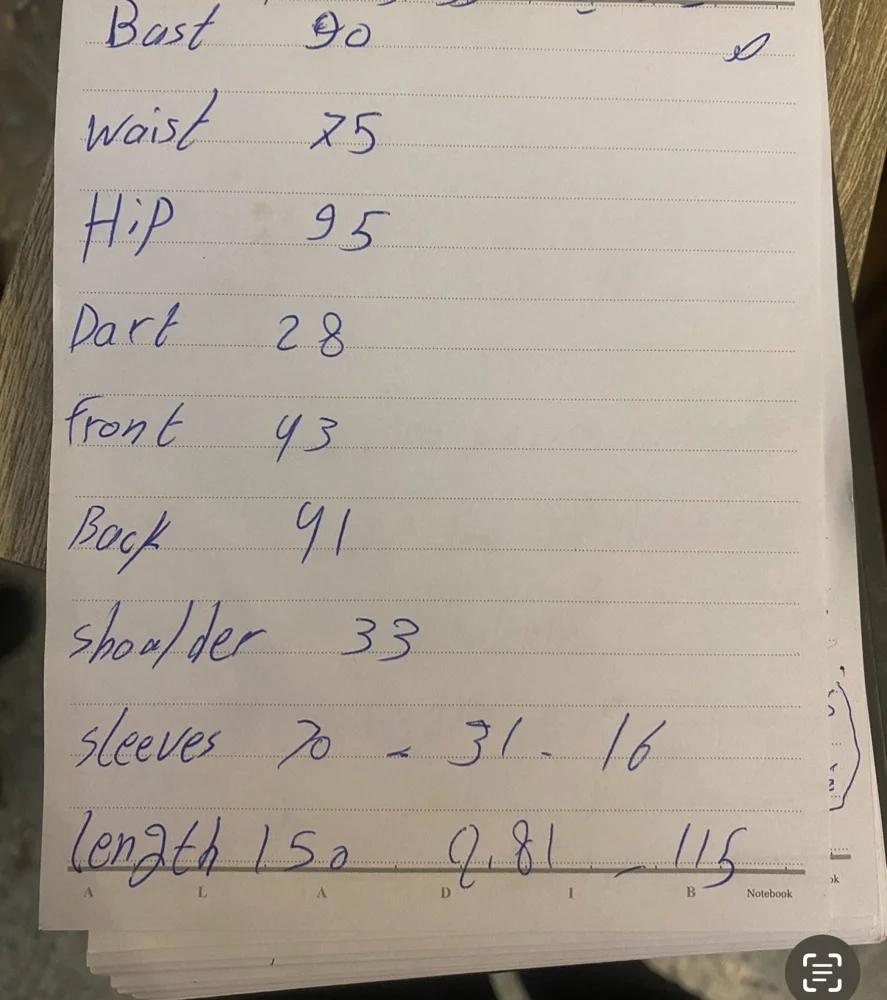 Bust 90
Waist 75
Hip 95
Dart 28
Front 43
Back 41
shoulder 33
sleeves 70 - 31 - 16
length 150 . 9.81 - 115
A L A D I B Notebook